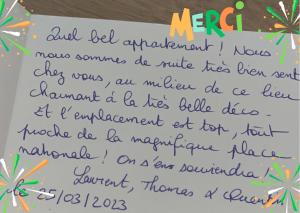 MERCI
Quel bel appartement ! Nous
nous sommes de suite très bien sent
chez vous, au milieu de ce lieu
charmant à la très belle déco.
Et l'emplacement est top, tout
proche de la magnifique place
nationale ! On s'en souviendra !
Laurent, Thomas & Quentin
le 25/03/2023